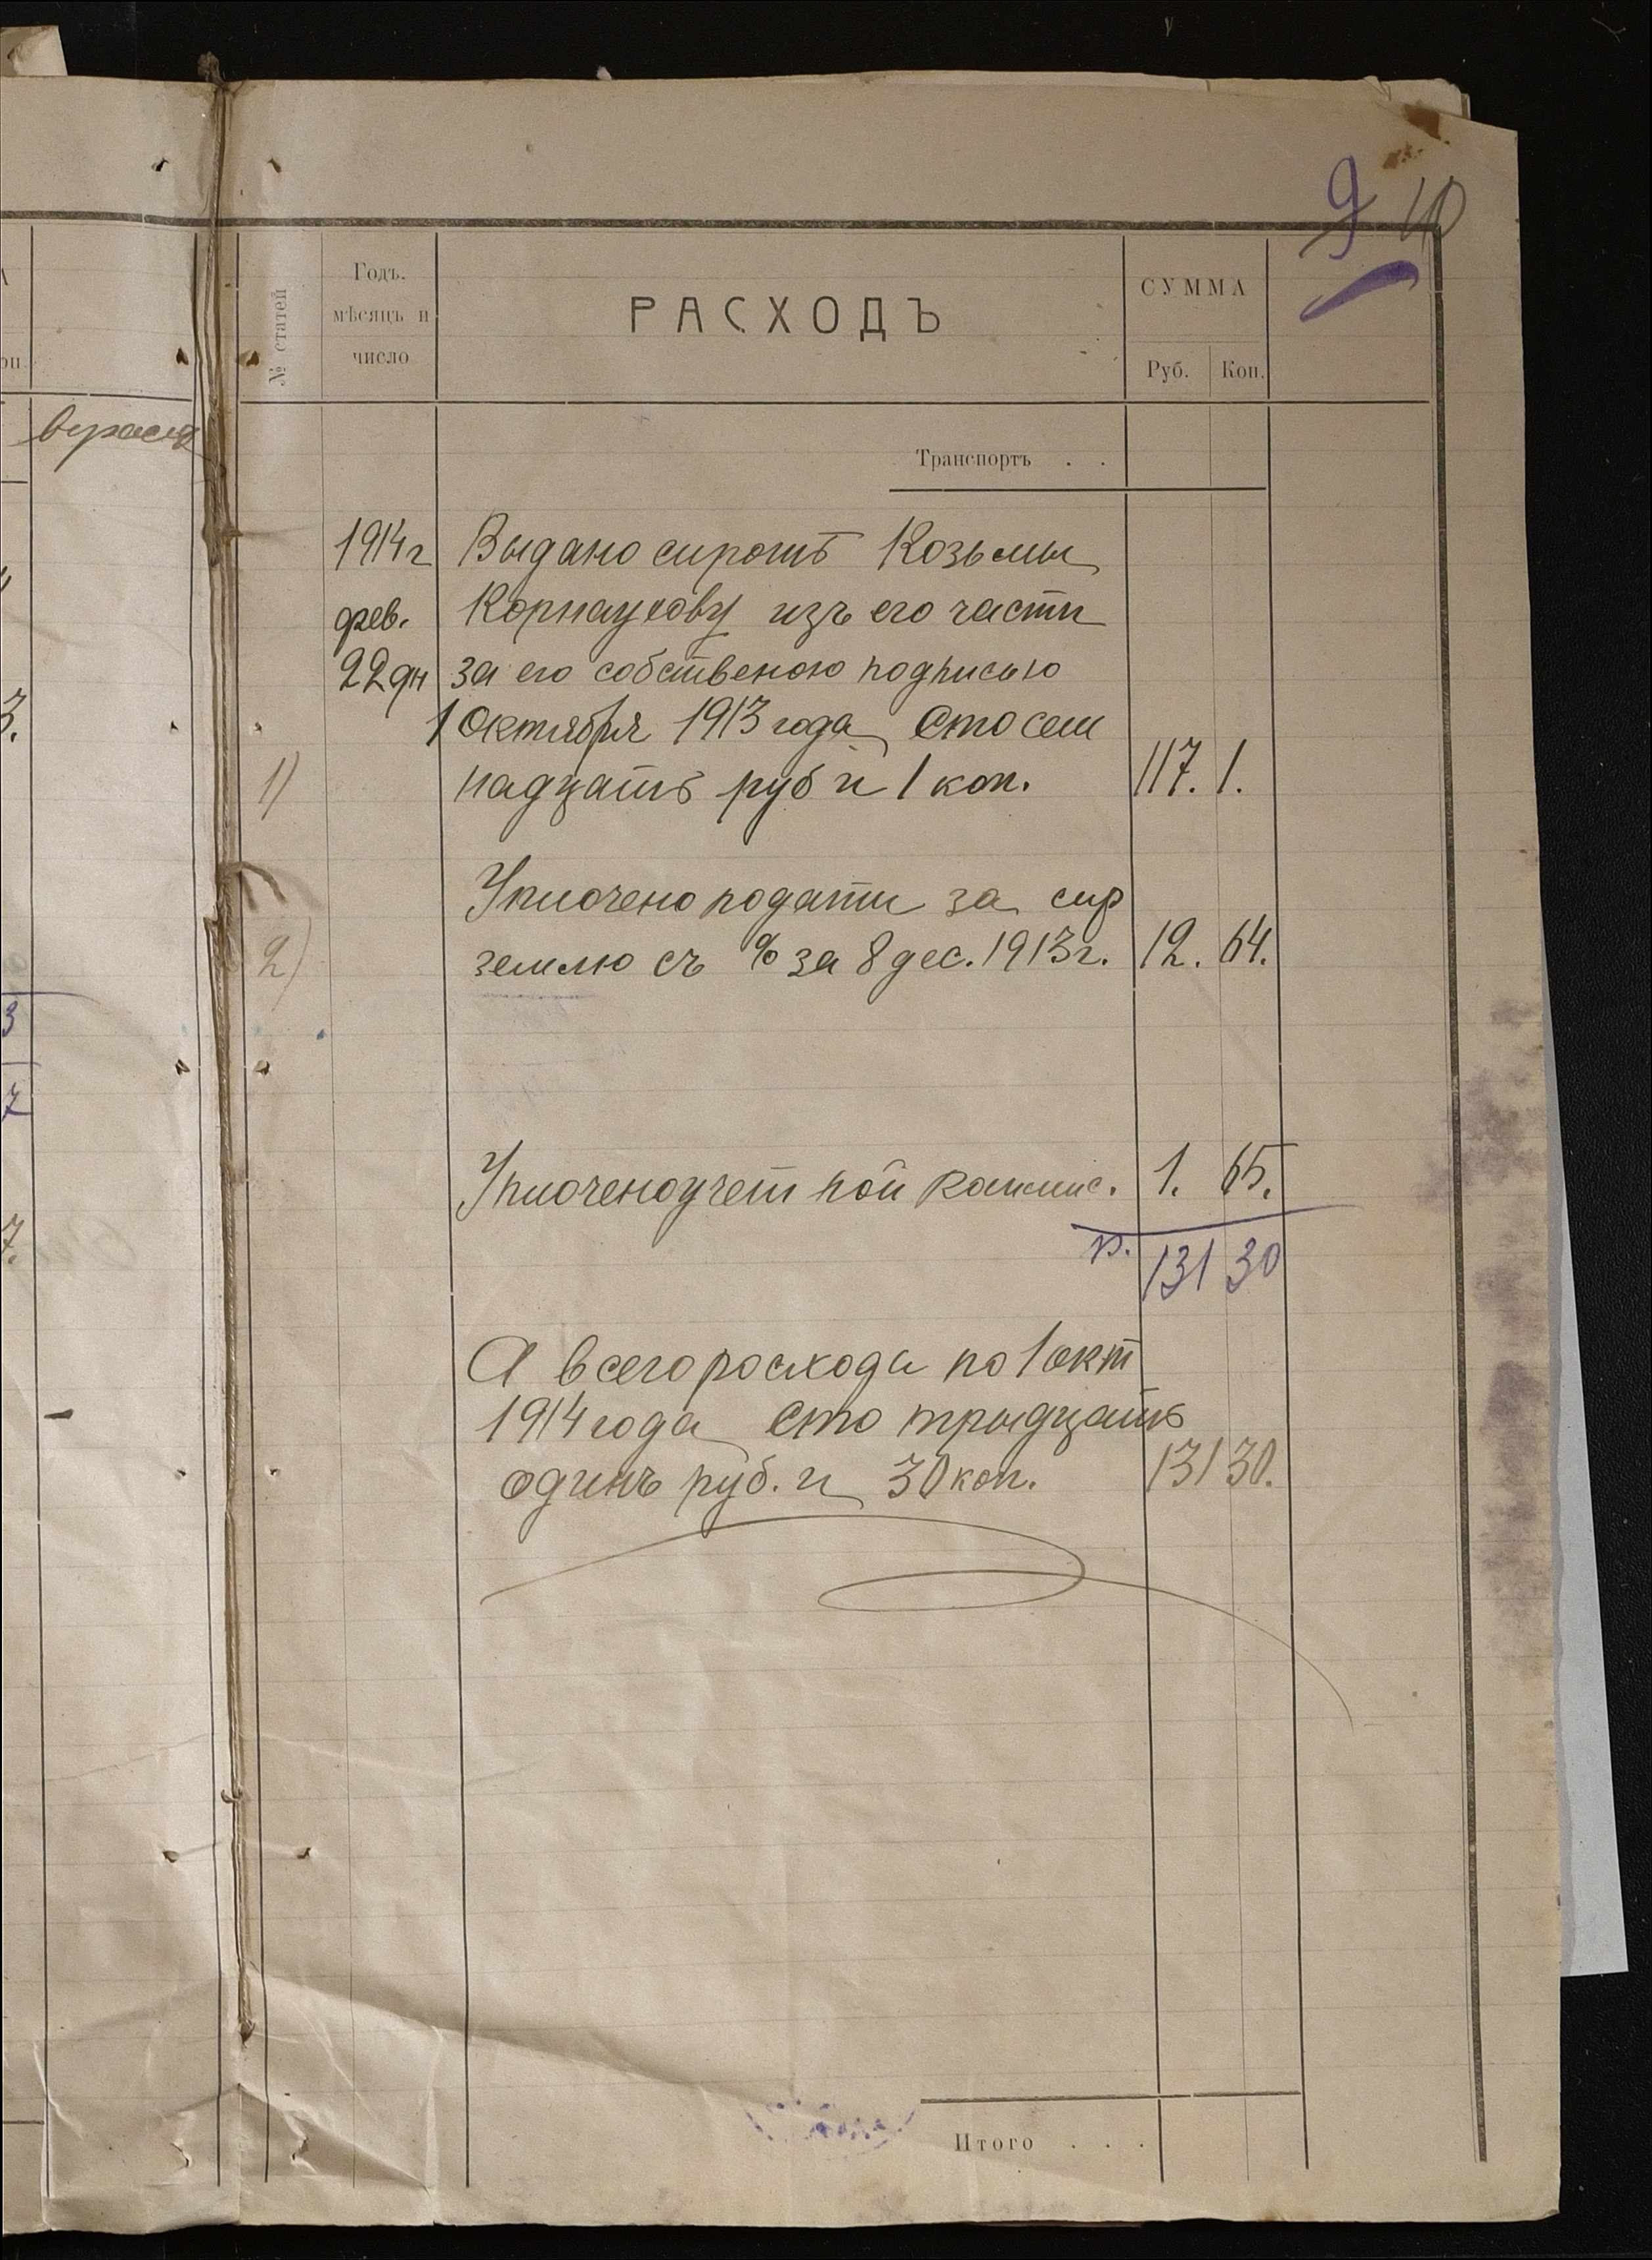 9 10
№ статей
Годъ.
мѣсяцъ и
число
РАСХОДЪ
СУММА
Руб. Коп.
Транспортъ . .
1914 г Выдано сиротѣ Козьмы
фев. Корнаухову изъ его части
22 дн за его собственою подписью
1 Октября 1913 года Сто сем
1) надцать руб и 1 коп. 117. 1.
Уплочено подати за сир
2) землю съ % за 8 дес. 1913 г. 12. 64.
Уплочено учетной коммис. 1. 65.
131 30
А всего росхода по 1 окт
1914 года Сто трыдцать
одинъ руб. и 30 коп. 131 30.
Итого . . .